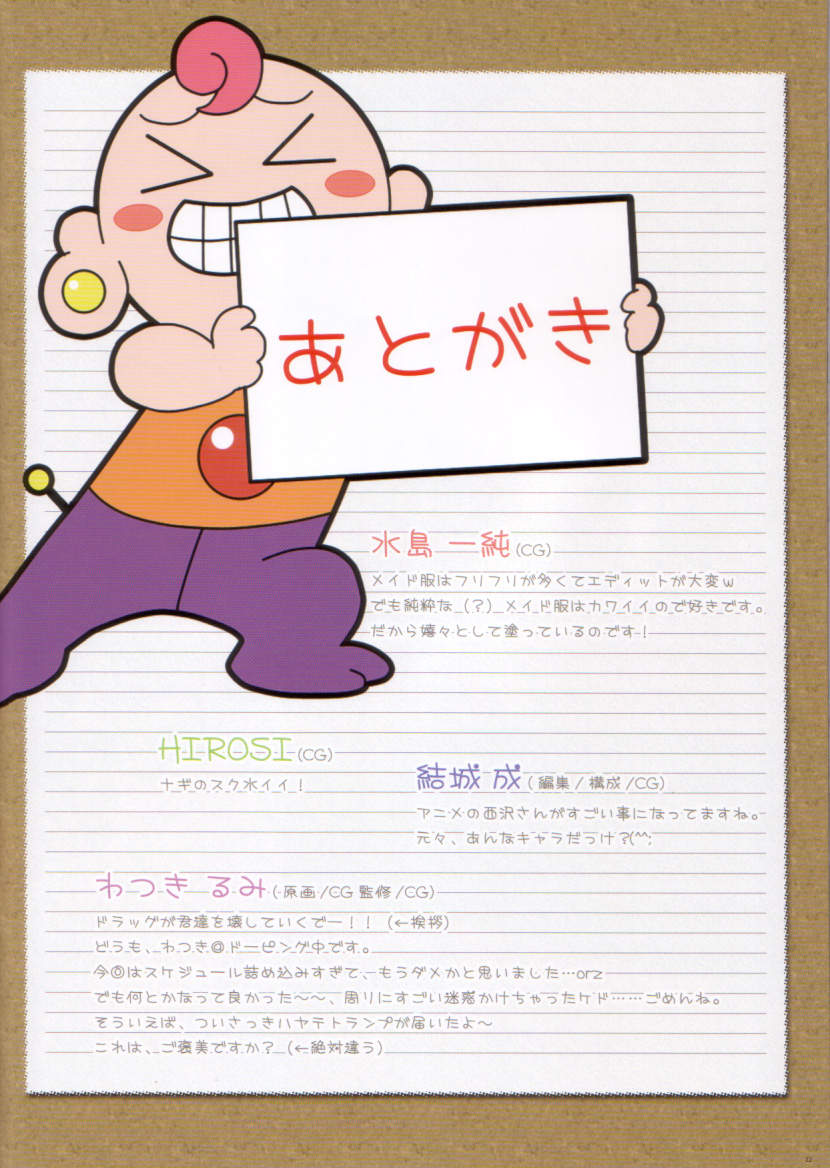 あとがき
水島 一純(CG)
メイド服はフリフリが多くてエディットが大変w
でも純粋な(?)メイド服はカワイイので好きです。
だから嬉々として塗っているのです!
HIROSI(CG)
ナギのスク水イイ!
結城 成(編集/構成/CG)
アニメの西沢さんがすごい事になってますね。
元々、あんなキャラだっけ?(^^;
わつき るみ(原画/CG監修/CG)
ドラッグが君達を壊していくでー!!(←挨拶)
どうも、わつき@ドーピング中です。
今◎はスケジュール詰め込みすぎて、もうダメかと思いました…orz
でも何とかなって良かった〜〜、周りにすごい迷惑かけちゃったケド……ごめんね。
そういえば、ついさっきハヤテトランプが届いたよ〜
これは、ご褒美ですか?(←絶対違う)